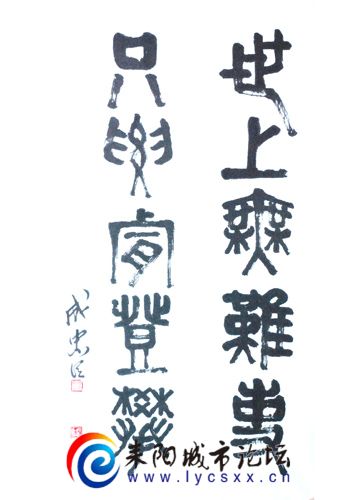 世上無難事
只要肯登攀
耒阳城市论坛
www.lycsxx.cn